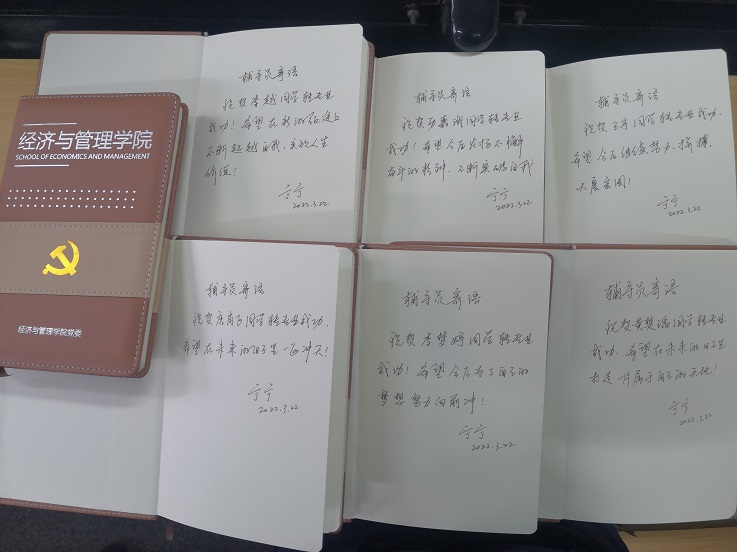 经济与管理学院
SCHOOL OF ECONOMICS AND MANAGEMENT
经济与管理学院党委
辅导员寄语
祝贺李越同学转专业
成功！希望在新的征途上
不断超越自我，实现人生
价值！
宁宁
2022.3.22
辅导员寄语
祝贺 同学转专业
成功！希望今后发扬不懈
奋斗的精神，不断实现自我
宁宁
2022.3.22
辅导员寄语
祝贺王宇同学转专业成功，
希望今后继续努力、拼搏，
大展宏图！
宁宁
2022.3.22
辅导员寄语
祝贺 同学转专业成功，
希望在未来的日子里一飞冲天！
宁宁
2022.3.22
辅导员寄语
祝贺李梦婷同学转专业
成功！希望今后为了自己的
梦想努力向前冲！
宁宁
2022.3.22
辅导员寄语
祝贺黄楚 同学转专业
成功，希望在未来的日子里
打造一片属于自己的天地！
宁宁
2022.3.22